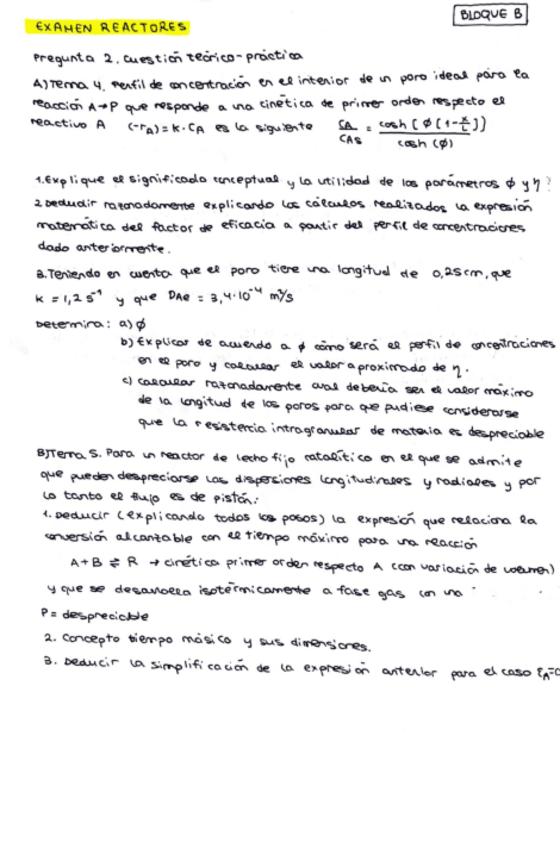 BLOQUE B
EXAMEN REACTORES
Pregunta 2. Cuestión teórico-práctica
A) Tema 4. Perfil de concentración en el interior de un poro ideal para la
reacción A→P que responde a una cinética de primer orden respecto el
reactivo A (-rA) = k·CA es la siguiente CA/CAs = cosh[ϕ(1-x/L)]/cosh(ϕ)
1. Explique el significado conceptual y la utilidad de los parámetros ϕ y η?
2. Deducir razonadamente explicando los cálculos realizados la expresión
matemática del factor de eficacia a partir del perfil de concentraciones
dado anteriormente.
3. Teniendo en cuenta que el poro tiene una longitud de 0,25cm, que
k = 1,2 s⁻¹ y que DAe = 3,4·10⁻⁴ m²/s
Determina: a) ϕ
b) Explicar de acuerdo a ϕ cómo será el perfil de concentraciones
en el poro y calcular el valor aproximado de η.
c) Calcular razonadamente cual debería ser el valor máximo
de la longitud de los poros para que pudiese considerarse
que la resistencia intragranular de materia es despreciable
B) Tema 5. Para un reactor de lecho fijo catalítico en el que se admite
que pueden despreciarse las dispersiones longitudinales y radiales y por
lo tanto el flujo es de pistón:
1. Deducir (explicando todos los pasos) la expresión que relaciona la
conversión alcanzable con el tiempo máximo para una reacción
A+B ⇌ R → cinética primer orden respecto A (con variación de volumen)
y que se desarrolla isotérmicamente a fase gas con una
P = despreciable
2. Concepto tiempo másico y sus dimensiones.
3. Deducir la simplificación de la expresión anterior para el caso εA=0